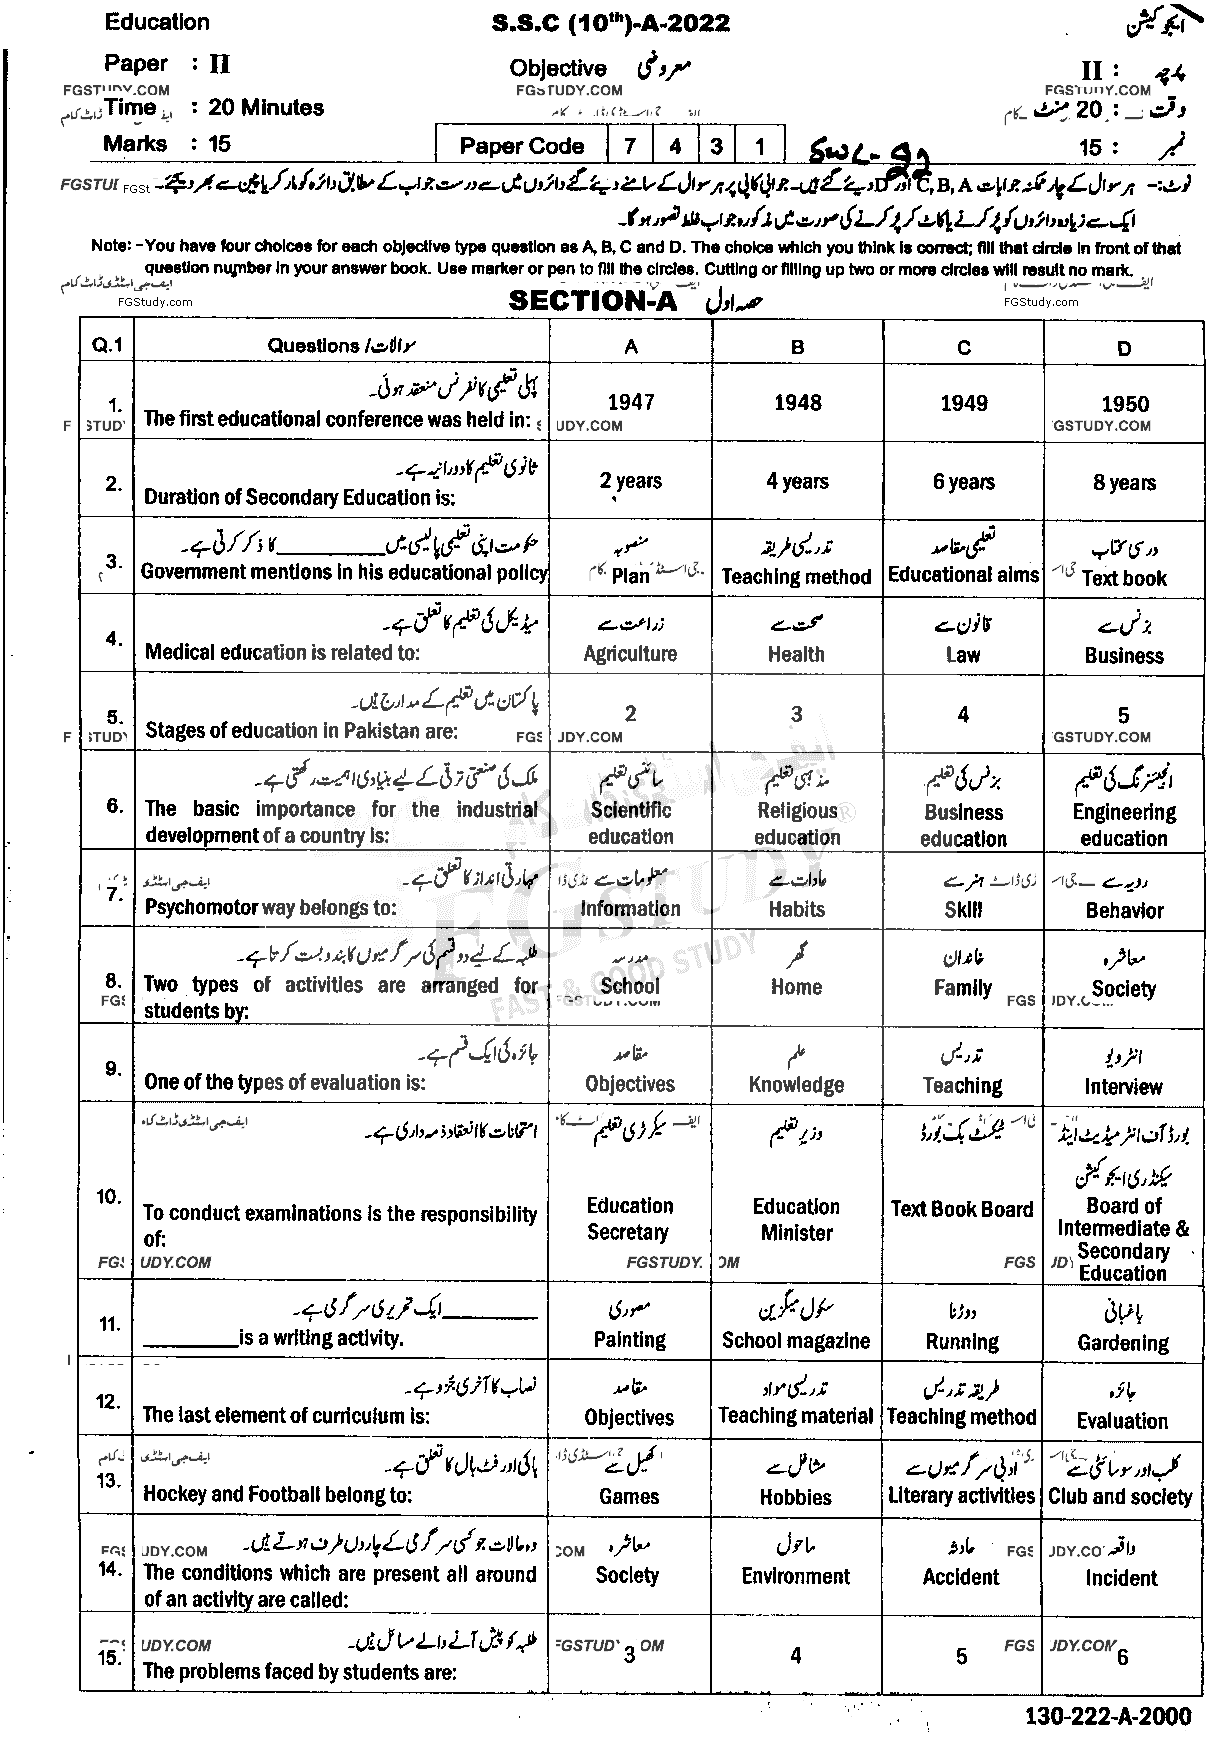 Education S.S.C (10th)-A-2022 ایجوکیشن
Paper : II Objective معروضی II : پرچہ
FGSTUDY.COM FGSTUDY.COM FGSTUDY.COM
Time : 20 Minutes وقت : 20 منٹ
Marks : 15 Paper Code 7 4 3 1 SWL-92 15 : نمبر
نوٹ:- ہر سوال کے چار ممکنہ جوابات C, B, A اور D دیئے گئے ہیں۔ جوابی کاپی پر ہر سوال کے سامنے دیئے گئے دائروں میں سے درست جواب کے مطابق دائرہ کو مارکر یا پین سے بھر دیجئے۔
ایک سے زیادہ دائروں کو پُر کرنے یا کاٹ کر پُر کرنے کی صورت میں مذکورہ جواب غلط تصور ہو گا۔
Note: -You have four choices for each objective type question as A, B, C and D. The choice which you think is correct; fill that circle in front of that
question number in your answer book. Use marker or pen to fill the circles. Cutting or filling up two or more circles will result no mark.
FGStudy.com SECTION-A حصہ اول FGStudy.com
Q.1 Questions / سوالات A B C D
پہلی تعلیمی کانفرنس منعقد ہوئی۔
1. The first educational conference was held in: 1947 1948 1949 1950
ثانوی تعلیم کا دورانیہ ہے۔
2. Duration of Secondary Education is: 2 years 4 years 6 years 8 years
حکومت اپنی تعلیمی پالیسی میں ________ کا ذکر کرتی ہے۔ منصوبہ تدریسی طریقہ تعلیمی مقاصد درسی کتاب
3. Government mentions in his educational policy Plan Teaching method Educational aims Text book
میڈیکل کی تعلیم کا تعلق ہے۔ زراعت سے صحت سے قانون سے بزنس سے
4. Medical education is related to: Agriculture Health Law Business
پاکستان میں تعلیم کے مدارج ہیں۔
5. Stages of education in Pakistan are: 2 3 4 5
ملک کی صنعتی ترقی کے لیے بنیادی اہمیت رکھتی ہے۔ سائنسی تعلیم مذہبی تعلیم بزنس کی تعلیم انجینئرنگ کی تعلیم
6. The basic importance for the industrial Scientific Religious Business Engineering
development of a country is: education education education education
مہارتی انداز کا تعلق ہے۔ معلومات سے عادات سے ہنر سے رویے سے
7. Psychomotor way belongs to: Information Habits Skill Behavior
طلبہ کے لیے دو قسم کی سرگرمیوں کا بندوبست کرتا ہے۔ مدرسہ گھر خاندان معاشرہ
8. Two types of activities are arranged for School Home Family Society
students by:
جائزہ کی ایک قسم ہے۔ مقاصد علم تدریس انٹرویو
9. One of the types of evaluation is: Objectives Knowledge Teaching Interview
امتحانات کا انعقاد ذمہ داری ہے۔ سیکرٹری تعلیم وزیر تعلیم ٹیکسٹ بک بورڈ بورڈ آف انٹرمیڈیٹ اینڈ
سیکنڈری ایجوکیشن
10. To conduct examinations is the responsibility of: Education Secretary Education Minister Text Book Board Board of Intermediate & Secondary Education
________ ایک تحریری سرگرمی ہے۔ مصوری سکول میگزین دوڑنا باغبانی
11. ________ is a writing activity. Painting School magazine Running Gardening
نصاب کا آخری جُزو ہے۔ مقاصد تدریسی مواد طریقہ تدریس جائزہ
12. The last element of curriculum is: Objectives Teaching material Teaching method Evaluation
ہاکی اور فٹ بال کا تعلق ہے۔ کھیل سے مشاغل سے ادبی سرگرمیوں سے کلب اور سوسائٹی سے
13. Hockey and Football belong to: Games Hobbies Literary activities Club and society
وہ حالات جو کسی سرگرمی کے چاروں طرف ہوتے ہیں۔ معاشرہ ماحول حادثہ واقعہ
14. The conditions which are present all around Society Environment Accident Incident
of an activity are called:
طلبہ کو پیش آنے والے مسائل ہیں۔
15. The problems faced by students are: 3 4 5 6
FGSTUDY
FAST & GOOD STUDY
130-222-A-2000